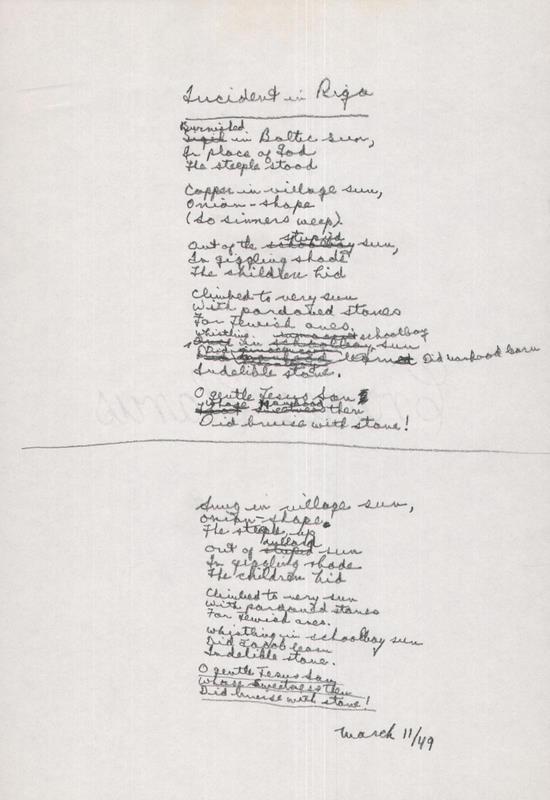 Incident in Riga
Burnished
in Baltic sun,
In place of God
The steeple stood
Copper in village sun,
Onion-shape
(So sinners weep).
stupid
Out of the schoolboy sun,
In giggling shade
The shildren hid
Climbed to very sun
With pardoned stones
For Jewish ones.
whistling schoolboy
in schoolboy sun
Did
learn Did manhood learn
Indelible stone.
O gentle Jesus Son
whose manhood
sweetness then
Did bruise with stone!
Snug in village sun,
Onion-shape.
The steeple, up
Out of stupid sun
In giggling shade
The children hid
Climbed to very sun
With pardoned stones
For Jewish ones.
Whistling in schoolboy sun
Did Jacob learn
Indelible stone.
O gentle Jesus Son
Whose sweetness then
Did bruise with stone!
March 11/49